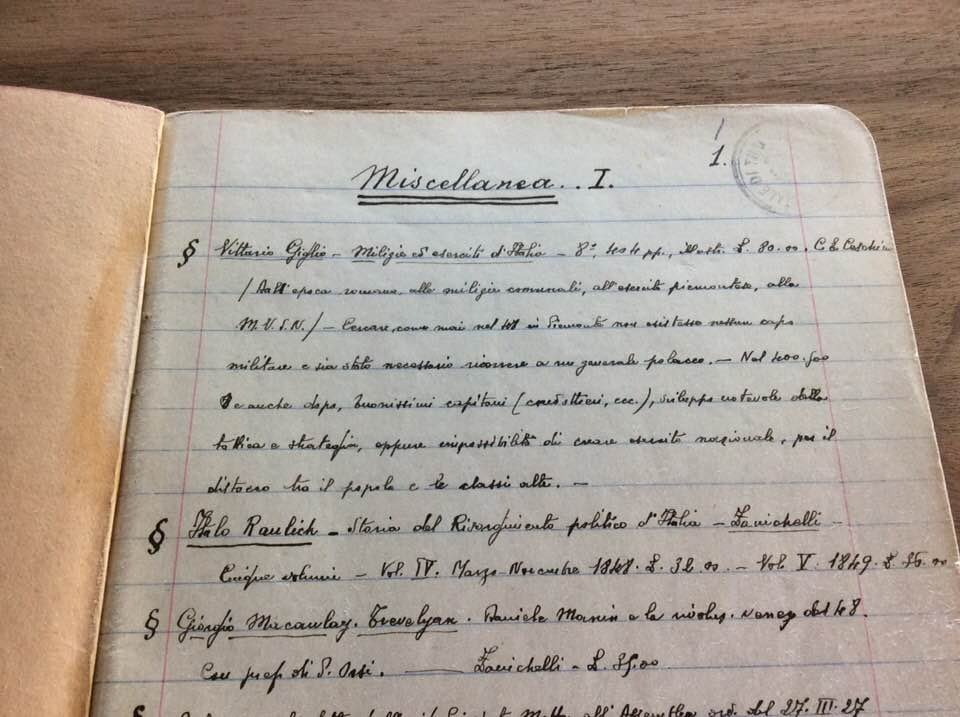 1.
Miscellanea. I.
§ Vittorio Giglio – Milizie ed eserciti d'Italia – 8°, 404 pp., illustr. L. 80.00. C. E. Ceschina
/ Dall'epoca romana, alle milizie comunali, all'esercito piemontese, alla
M.V.S.N./ – Cercare, come mai nel 48 in Piemonte non esistesse nessun capo
militare e sia stato necessario ricorrere a un generale polacco. – Nel 400-500
e anche dopo, buonissimi capitani (condottieri, ecc.), sviluppo notevole della
tattica e strategia, eppure impossibilità di creare esercito nazionale, per il
distacco tra il popolo e le classi alte. –
§ Italo Raulich – Storia del Risorgimento politico d'Italia – Zanichelli –
Cinque volumi – Vol. IV. Marzo-Novembre 1848. L. 32.00. – Vol. V. 1849. L. 35.00
§ Giorgio Macaulay. Trevelyan. Daniele Manin e la rivoluz. venez. del 48.
Con pref. di P. Orsi. – Zanichelli – L. 35.00
§ all'Assemblea del 27.III.27